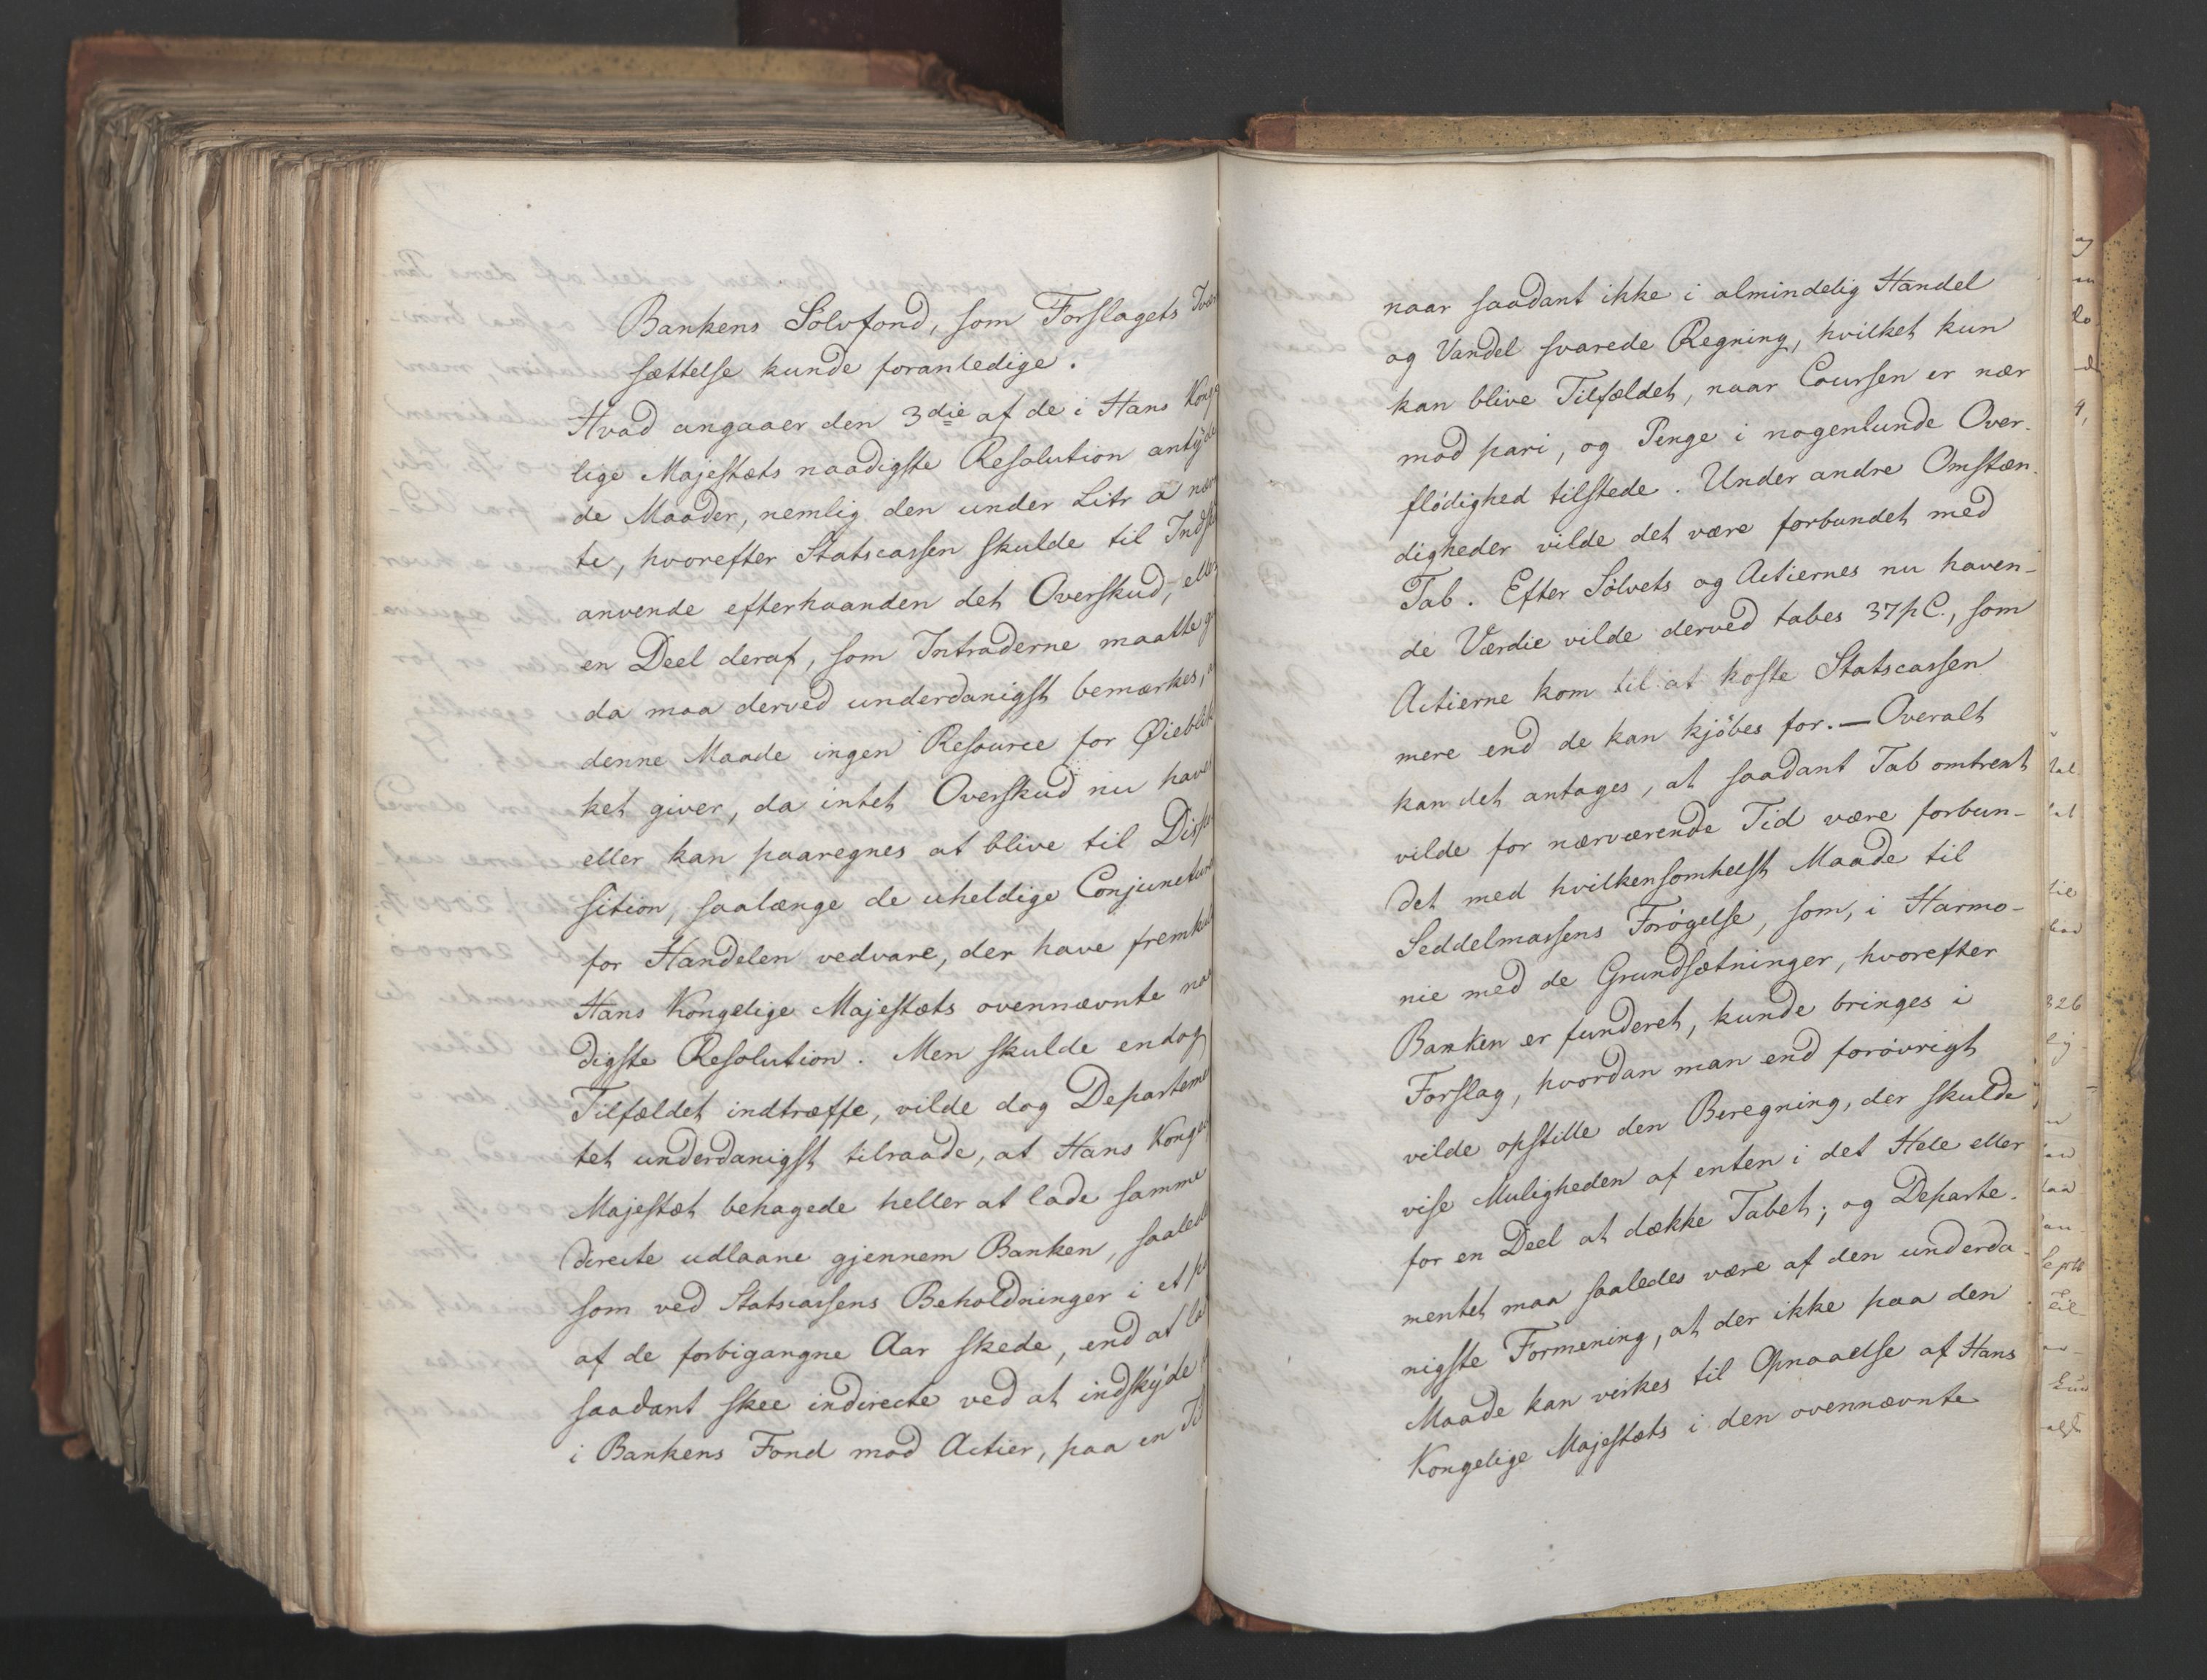 Bankens Sølvfond, som Forslagets Ivær
sættelse kunde foranledige.
Hvad angaaer den 3die af de i Hans Konge
lige Majestæts naadigste Resolution antÿde
de Maader, nemlig den under Litr a næm
te, hvorefter Statscassen skulde til Indsk
anvende efterhaanden det Overskud, eller
en Deel deraf, som Intraderne maatte g
da maa derved underdanigst bemærkes, a
denne Maade ingen Resource for Øieblik
ket giver, da intet Overskud nu haves
eller kan paaregnes at blive til Dispo
sition, saalænge de uheldige Conjuncture
for Handelen vedvare, der have fremkal
Hans Kongelige Majestæts ovennævnte naa
digste Resolution. Men skulde endog
Tilfældet indtræffe, vilde dog Departeme
tet underdanigst tilraade, at Hans Kongel
Majestæt behagede heller at lade samme
directe udlaane gjennem Banken, saalede
som ved Statscassens Beholdninger i et p
af de forbigangne Aar skede, end at la
saadant skee indirecte ved at indskÿde
i Bankens Fond mod Actier, paa en Ti
naar saadant ikke i almindelig Handel
og Vandel svarede Regning, hvilket kun
kan blive Tilfældet, naar Coursen er nær
mod pari, og Penge i nogenlunde Over-
flødighed tilstede. Under andre Omstæn-
digheder vilde det være forbundet med
Tab. Efter Sølvets og Actiernes nu haven-
de Værdie vilde derved tabes 37 pC., som
Actierne kom til at koste Statscassen
mere end de kan kjøbes for. — Overalt
kan det antages, at saadant Tab omtrent
vilde for nærværende Tid være forbun-
det med hvilkensomhelst Maade til
Seddelmassens Forøgelse, som, i Harmo-
nie med de Grundsætninger, hvorefter
Banken er funderet, kunde bringes i
Forslag, hvordan man end forøvrigt
vilde opstille den Beregning, der skulde
vise Muligheden af enten i det Hele eller
for en Deel at dække Tabet; og Departe-
mentet maa saaledes være af den underda-
nigste Formening, at der ikke paa den
Maade kan virkes til Opnaaelse af Hans
Kongelige Majestæts i den ovennævnte